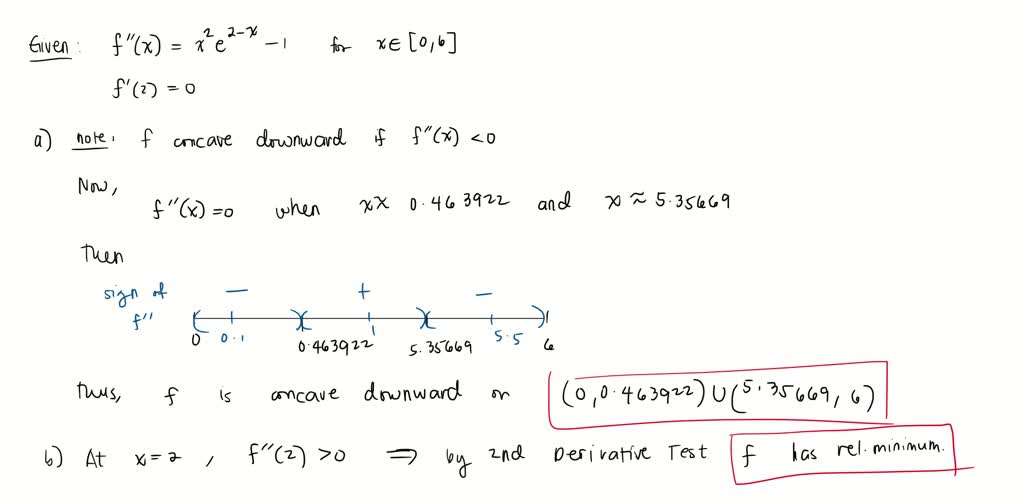 Given: f''(x) = x²e^{2-x} - 1 for x ∈ [0,6]
f'(2) = 0
a) note: f concave downward if f''(x) < 0
Now,
f''(x) = 0 when x≈ 0.463922 and x ≈ 5.35669
Then
sign of − + −
f''
0 0.1 0.463922 1 5.35669 5.5 6
Thus, f is concave downward on (0,0.463922) ∪ (5.35669, 6)
b) At x=2, f''(2) > 0 ⇒ by 2nd Derivative Test f has rel. minimum.